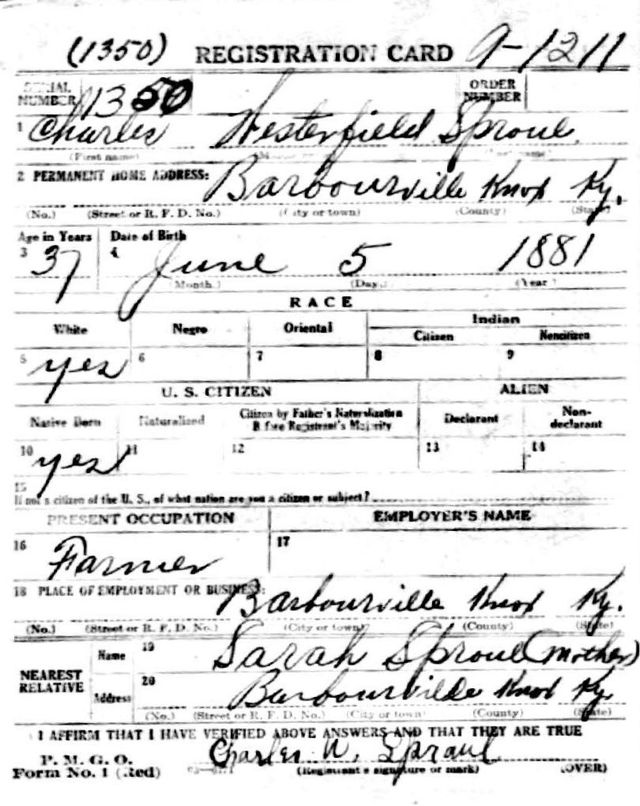 (1350) REGISTRATION CARD A-1211
SERIAL NUMBER 1350 ORDER NUMBER
1 Charles Westerfield Sproul
(First name)
2 PERMANENT HOME ADDRESS: Barbourville Knox Ky.
(No.) (Street or R. F. D. No.) (City or town) (County) (State)
Age in Years Date of Birth
3 37 4 June 5 1881
(Month.) (Day.) (Year)
RACE
White Negro Oriental Indian
Citizen Noncitizen
5 yes 6 7 8 9
U. S. CITIZEN ALIEN
Native Born Naturalized Citizen by Father's Naturalization Before Registrant's Majority Declarant Non-declarant
10 yes 11 12 13 14
15
If not a citizen of the U. S., of what nation are you a citizen or subject?
PRESENT OCCUPATION EMPLOYER'S NAME
16 Farmer 17
18 PLACE OF EMPLOYMENT OR BUSINESS: Barbourville Knox Ky.
(No.) (Street or R. F. D. No.) (City or town) (County) (State)
NEAREST RELATIVE Name 19 Sarah Sproul (mother)
Address 20 Barbourville Knox Ky.
(No.) (Street or R. F. D. No.) (City or town) (County) (State)
I AFFIRM THAT I HAVE VERIFIED ABOVE ANSWERS AND THAT THEY ARE TRUE
P. M. G. O. Charles W. Sproul
Form No. 1 (Red) (Registrant's signature or mark) (OVER)